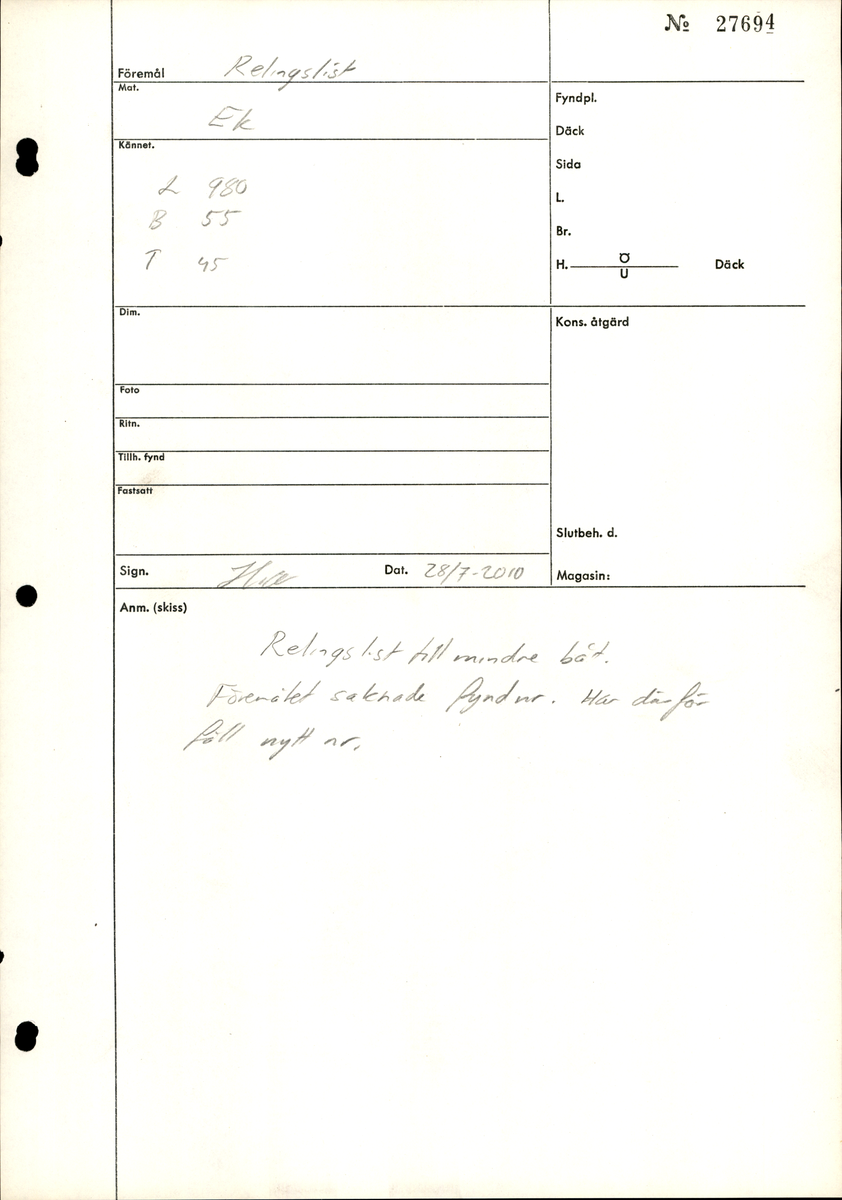 № 27694
Föremål Relingslist
Mat. Ek
Kännet.
L 980
B 55
T 45
Fyndpl.
Däck
Sida
L.
Br.
H. Ö U Däck
Dim.
Kons. åtgärd
Foto
Ritn.
Tillh. fynd
Fastsatt
Slutbeh. d.
Sign. Dat. 28/7-2010
Magasin:
Anm. (skiss)
Relingslist till mindre båt.
Föremålet saknade fyndnr. Har därför
fått nytt nr.